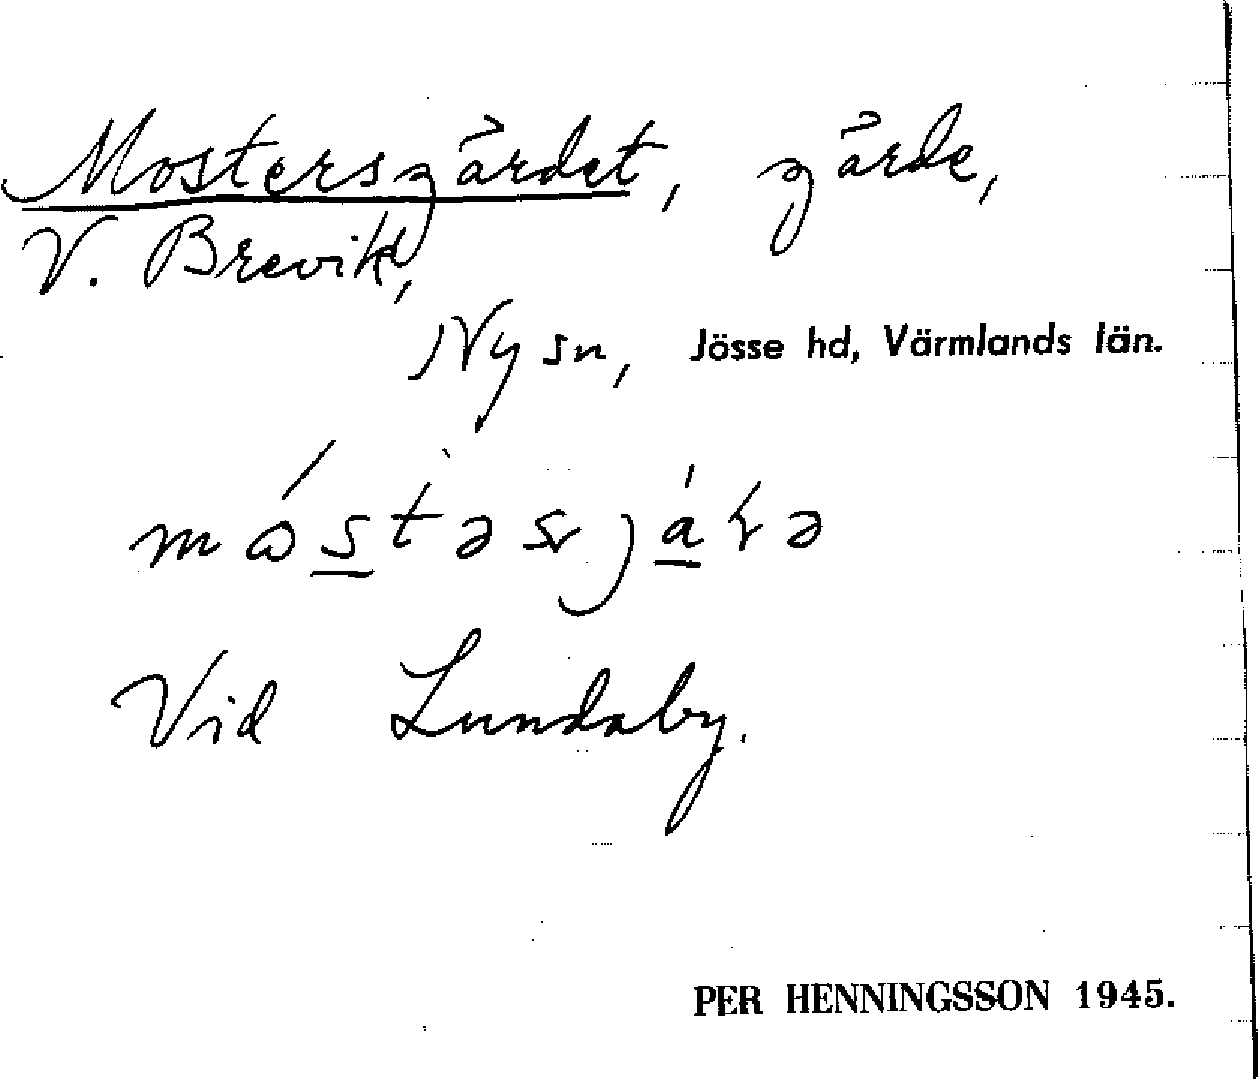 Mostersgärdet, gärde,
V. Brevik,
Ny sn, Jösse hd, Värmlands län.
Vid Lundaby.
PER HENNINGSSON 1945.